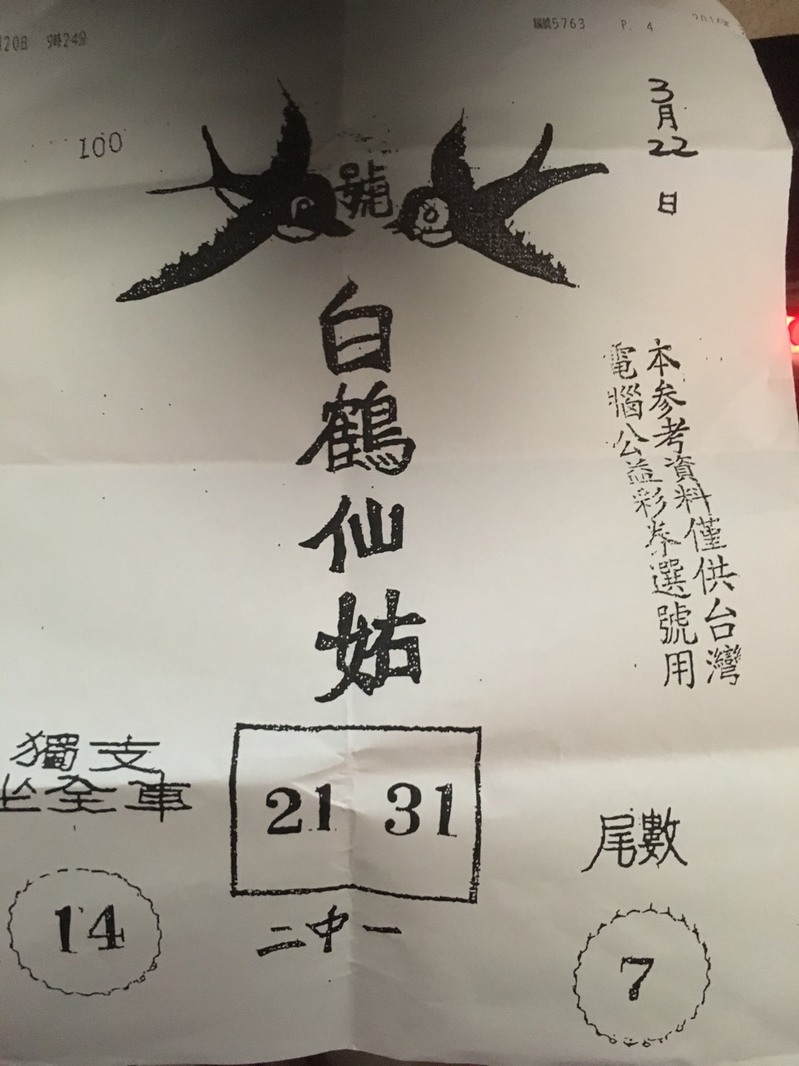 20日 9時24分
編號5763 P. 4
100
號
3月22日
白鶴仙姑
本参考資料僅供台灣
電腦公益彩券選號用
獨支
全車
14
21 31
二中一
尾數
7